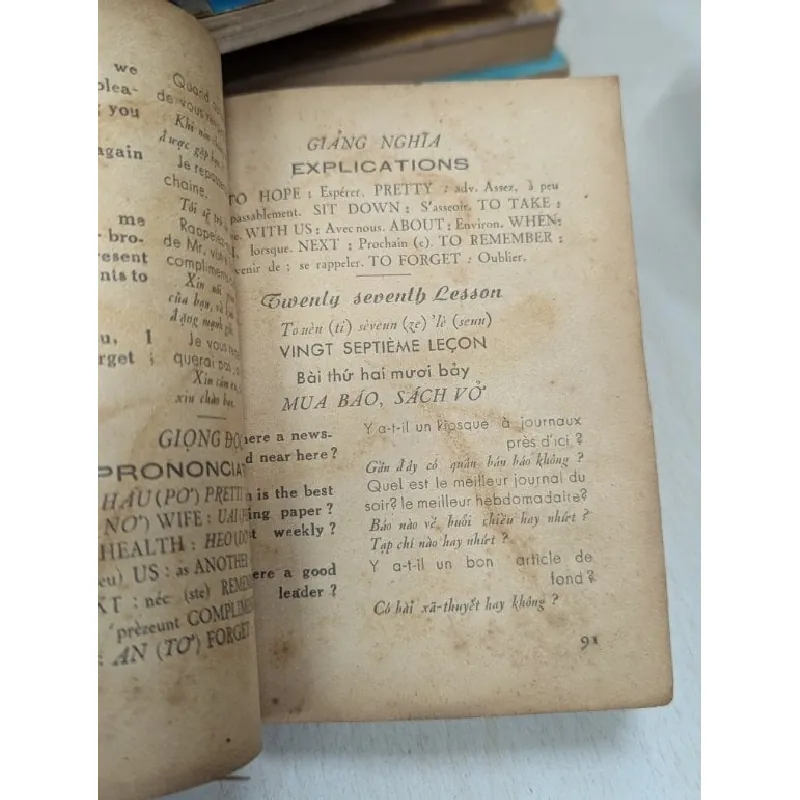 we
plea-
you
again
me
bro-
present
nts to
u, I
forget ;
Quand
de vous
Khi nào
được gặp
Je
chaine.
Tôi sẽ
Rappelez
de Mr.
compliments
Xin
của bạn, và
đạng mạnh
Je vous
querai pas
Xin cám ơn,
xin chào bạn.
GIỌNG ĐỌC
PRONONCIAT
HẤU (PO') PRETT
NO') WIFE : UAI
HEALTH : HEO
US : as ANOTHER
XT : néc (ste) REME
'prèzeunt COMPLIME
: AN (TO') FORGET
GIẢNG NGHĨA
EXPLICATIONS
TO HOPE : Espérer. PRETTY : adv. Assez, à peu
passablement. SIT DOWN : S'asseoir. TO TAKE :
WITH US : Avec nous. ABOUT : Environ. WHEN:
lorsque. NEXT : Prochain (e). TO REMEMBER :
venir de ; se rappeler. TO FORGET : Oublier.
Twenly seventh Lesson
Touèn (ti) sèveunn (ze) 'lè (senn)
VINGT SEPTIÈME LEÇON
Bài thứ hai mươi bảy
MUA BÁO, SÁCH VỞ
here a news-
d near here ?
is the best
ing paper ?
t weekly ?
ere a good
leader ?
Y a-t-il un kiosque à journaux
près d'ici ?
Gần đây có quán bán báo không ?
Quel est le meilleur journal du
soir? le meilleur hebdomadaire?
Báo nào về buổi chiều hay nhứt ?
Tạp chí nào hay nhứt ?
Y a-t-il un bon article de
fond ?
Có bài xã-thuyết hay không ?
91